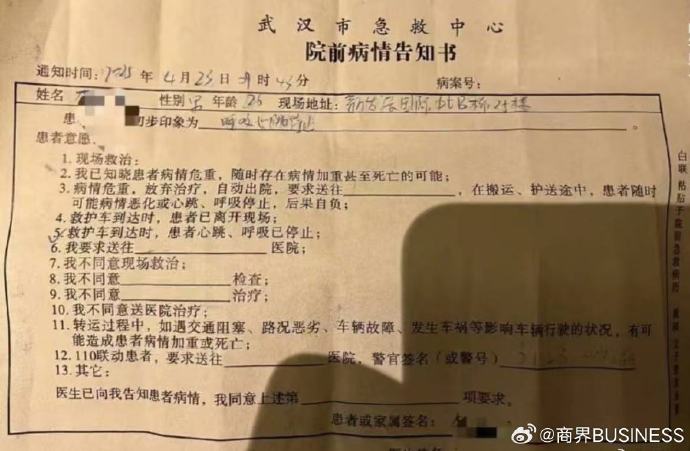 武汉市急救中心
院前病情告知书
通知时间：2025年4月23日 时43分 病案号：
姓名 性别 男 年龄 25 现场地址：
患 初步印象为 呼吸心跳停止
患者意愿
1. 现场救治；
2. 我已知晓患者病情危重，随时存在病情加重甚至死亡的可能；
3. 病情危重，放弃治疗，自动出院，要求送往 ，在搬运、护送途中，患者随时
可能病情恶化或心跳、呼吸停止，后果自负；
4. 救护车到达时，患者已离开现场；
5. 救护车到达时，患者心跳、呼吸已停止；
6. 我要求送往 医院；
7. 我不同意现场救治；
8. 我不同意 检查；
9. 我不同意 治疗；
10. 我不同意送医院治疗；
11. 转运过程中，如遇交通阻塞、路况恶劣、车辆故障、发生车祸等影响车辆行驶的状况，有可
能造成患者病情加重或死亡；
12. 110联动患者，要求送往 医院，警官签名（或警号）
13. 其它：
医生已向我告知患者病情，我同意上述第 项要求。
患者或家属签名：
白联 粘后于院前急救病历
@商界BUSINESS